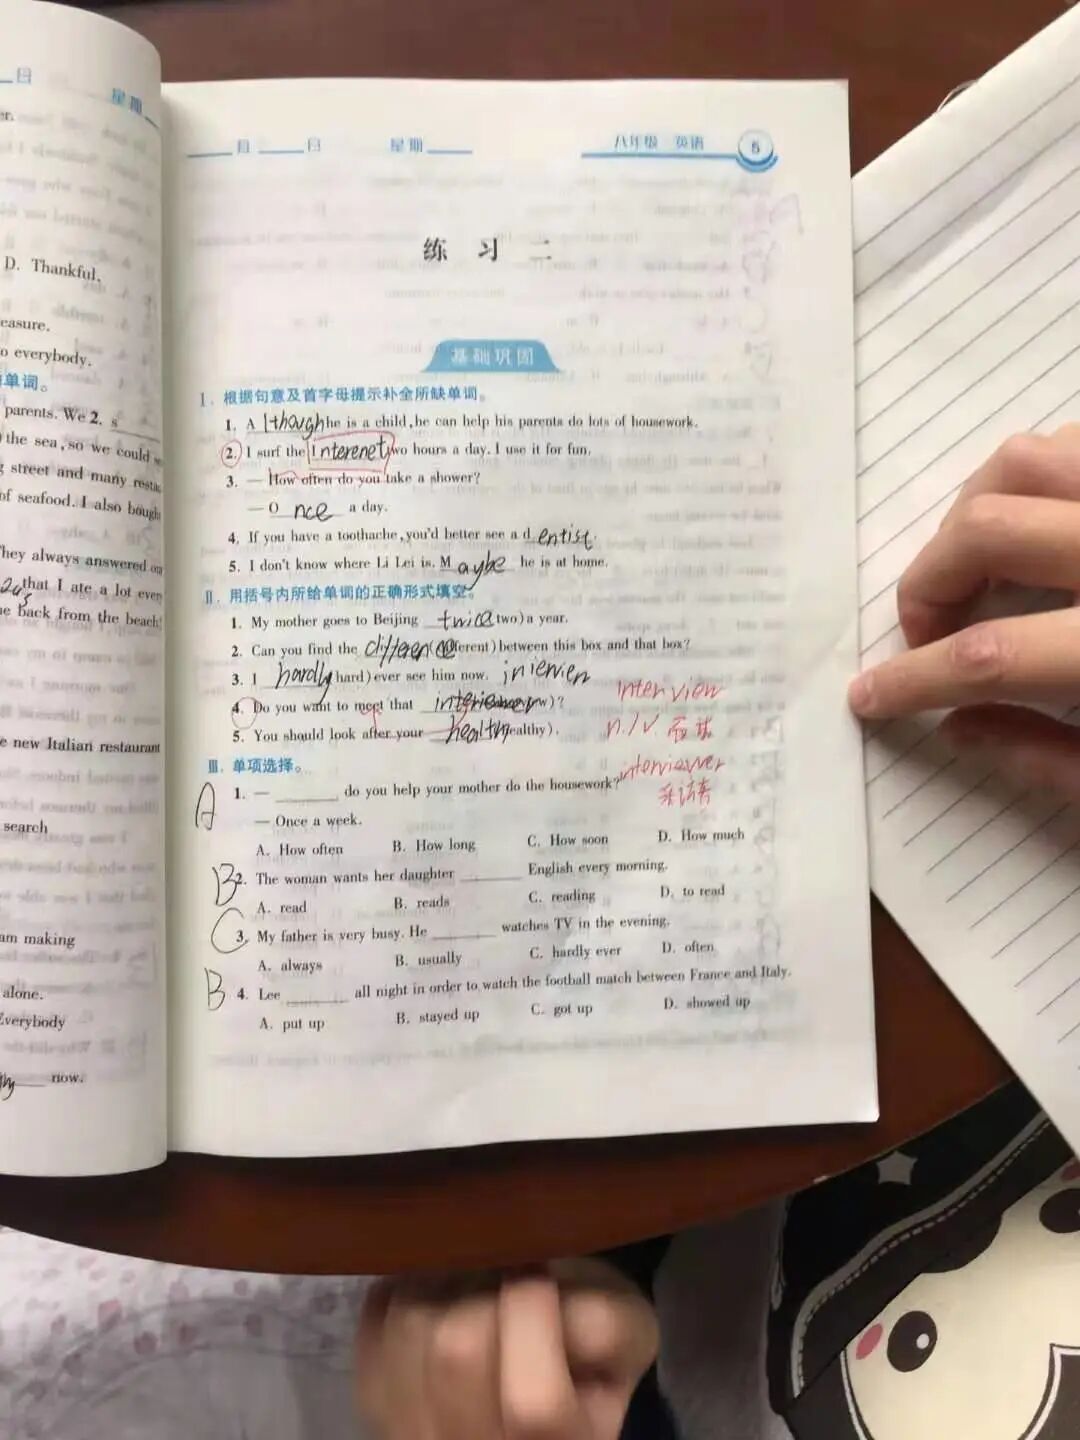 日
星期
D. Thankful.
easure.
o everybody.
单词。
parents. We 2. s
the sea, so we could
street and many
of seafood. I also bought
They always answered
that I ate a lot
back from the beach
new Italian restaurant
search
am making
alone.
Everybody
now.
月 日 星期
八年级 英语 5
练 习 二
基础巩固
Ⅰ. 根据句意及首字母提示补全所缺单词。
1. A lthough he is a child, he can help his parents do lots of housework.
2. I surf the I nterenet two hours a day. I use it for fun.
3. — How often do you take a shower?
— O nce a day.
4. If you have a toothache, you'd better see a d entist.
5. I don't know where Li Lei is. M aybe he is at home.
Ⅱ. 用括号内所给单词的正确形式填空。
1. My mother goes to Beijing twice two) a year.
2. Can you find the difference ferent) between this box and that box?
3. I hardly hard) ever see him now.
4. Do you want to meet that w)?
interview
5. You should look after your health ealthy).
n./v.
interviewer
Ⅲ. 单项选择。
A 1. — ______ do you help your mother do the housework?
— Once a week.
A. How often B. How long C. How soon D. How much
B 2. The woman wants her daughter ______ English every morning.
A. read B. reads C. reading D. to read
C 3. My father is very busy. He ______ watches TV in the evening.
A. always B. usually C. hardly ever D. often
B 4. Lee ______ all night in order to watch the football match between France and Italy.
A. put up B. stayed up C. got up D. showed up